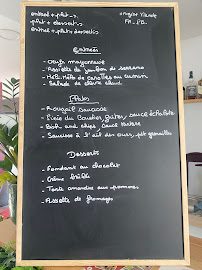 entrée + plat
plat + dessert
entrée + plat + dessert
Entrées
- Oeufs mayonnaise
- Assiette de jambon de serrano
- de carottes au cumin
- Salade de chèvre chaud
Plats
- Rougail saucisse
- Pièce du boucher, frites, sauce échalote
- Fish and chips, sauce tartare
- Saucisse à l'ail des ours, grenailles
Desserts
- Fondant au chocolat
- Crème brûlée
- Tarte amandine aux pommes
- Assiette de fromages